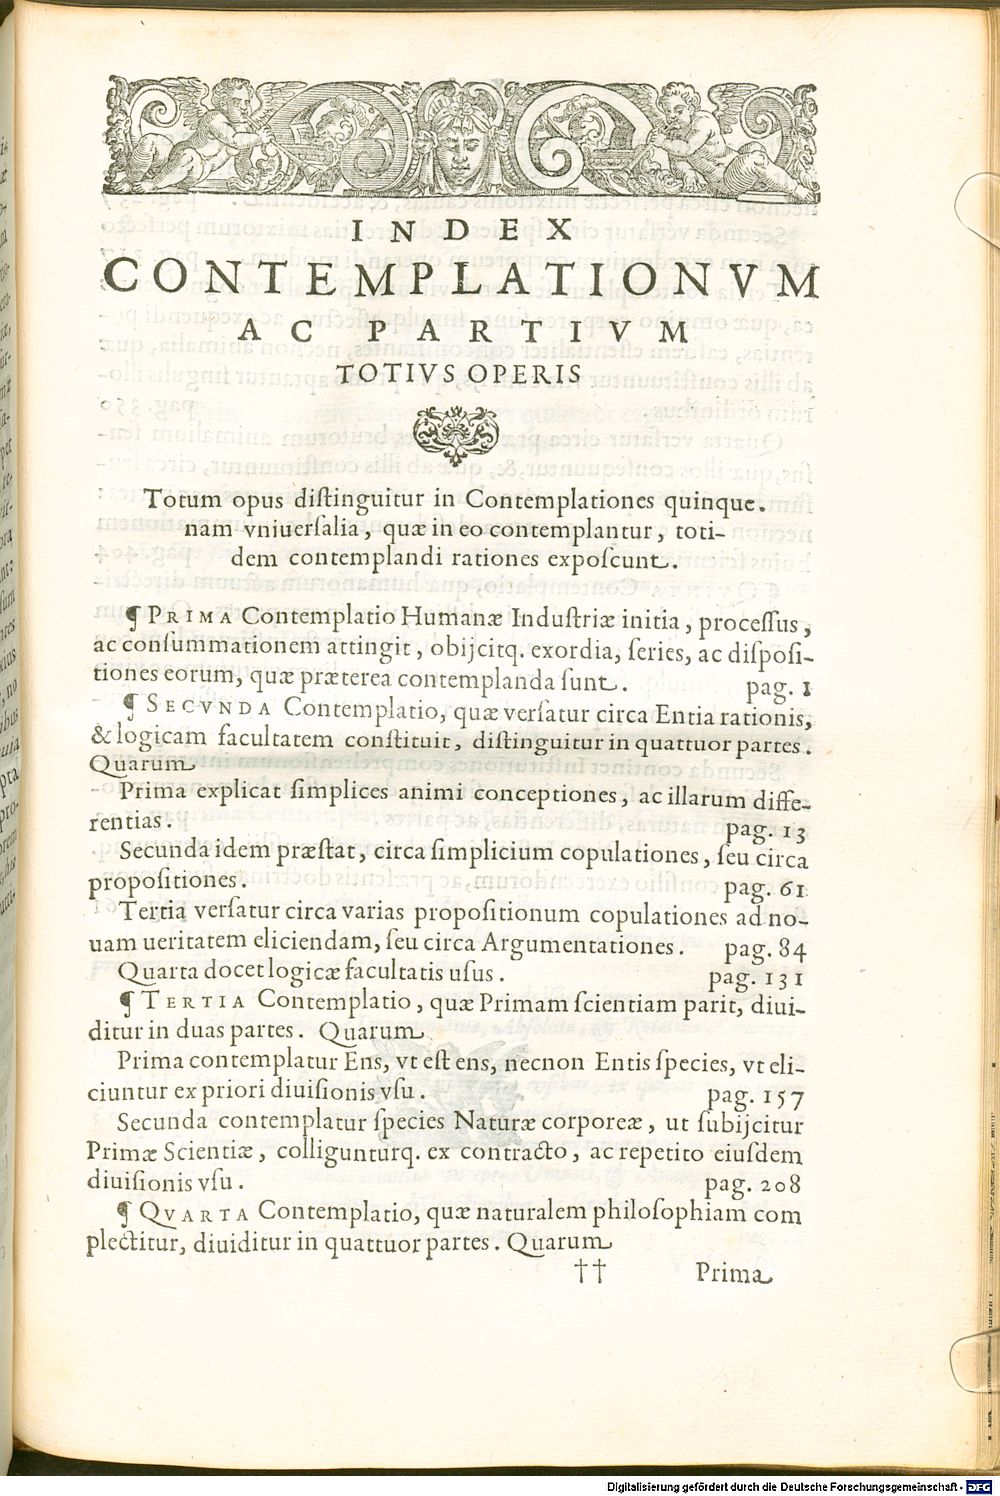 INDEX
CONTEMPLATIONVM
AC PARTIVM
TOTIVS OPERIS
Totum opus distinguitur in Contemplationes quinque.
nam vniuersalia, quæ in eo contemplantur, toti-
dem contemplandi rationes exposcunt.
¶ PRIMA Contemplatio Humanæ Industriæ initia, processus,
ac consummationem attingit, obijcitq. exordia, series, ac disposi-
tiones eorum, quæ præterea contemplanda sunt. pag. 1
¶ SECVNDA Contemplatio, quæ versatur circa Entia rationis,
& logicam facultatem constituit, distinguitur in quattuor partes.
Quarum
Prima explicat simplices animi conceptiones, ac illarum diffe-
rentias. pag. 13
Secunda idem præstat, circa simplicium copulationes, seu circa
propositiones. pag. 61
Tertia versatur circa varias propositionum copulationes ad no-
uam ueritatem eliciendam, seu circa Argumentationes. pag. 84
Quarta docet logicæ facultatis usus. pag. 131
¶ TERTIA Contemplatio, quæ Primam scientiam parit, diui-
ditur in duas partes. Quarum
Prima contemplatur Ens, vt est ens, necnon Entis species, vt eli-
ciuntur ex priori diuisionis vsu. pag. 157
Secunda contemplatur species Naturæ corporeæ, ut subijcitur
Primæ Scientiæ, colligunturq. ex contracto, ac repetito eiusdem
diuisionis vsu. pag. 208
¶ QVARTA Contemplatio, quæ naturalem philosophiam com
plectitur, diuiditur in quattuor partes. Quarum
†† Prima
Digitalisierung gefördert durch die Deutsche Forschungsgemeinschaft - DFG